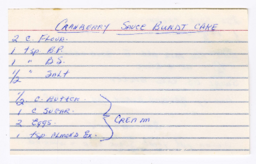 CRANBERRY SAUCE BUNDT CAKE
2 C. FLOUR.
1 tsp B.P.
1 " B.S.
1/2 " SALT
1/2 C. BUTTER.
1 C. SUGAR.
2 EGGS
1 tsp ALMOND EX.
CREAM